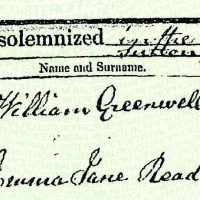 solemnized in the
Name and Surname.
William Greenwell
Emma Jane Read